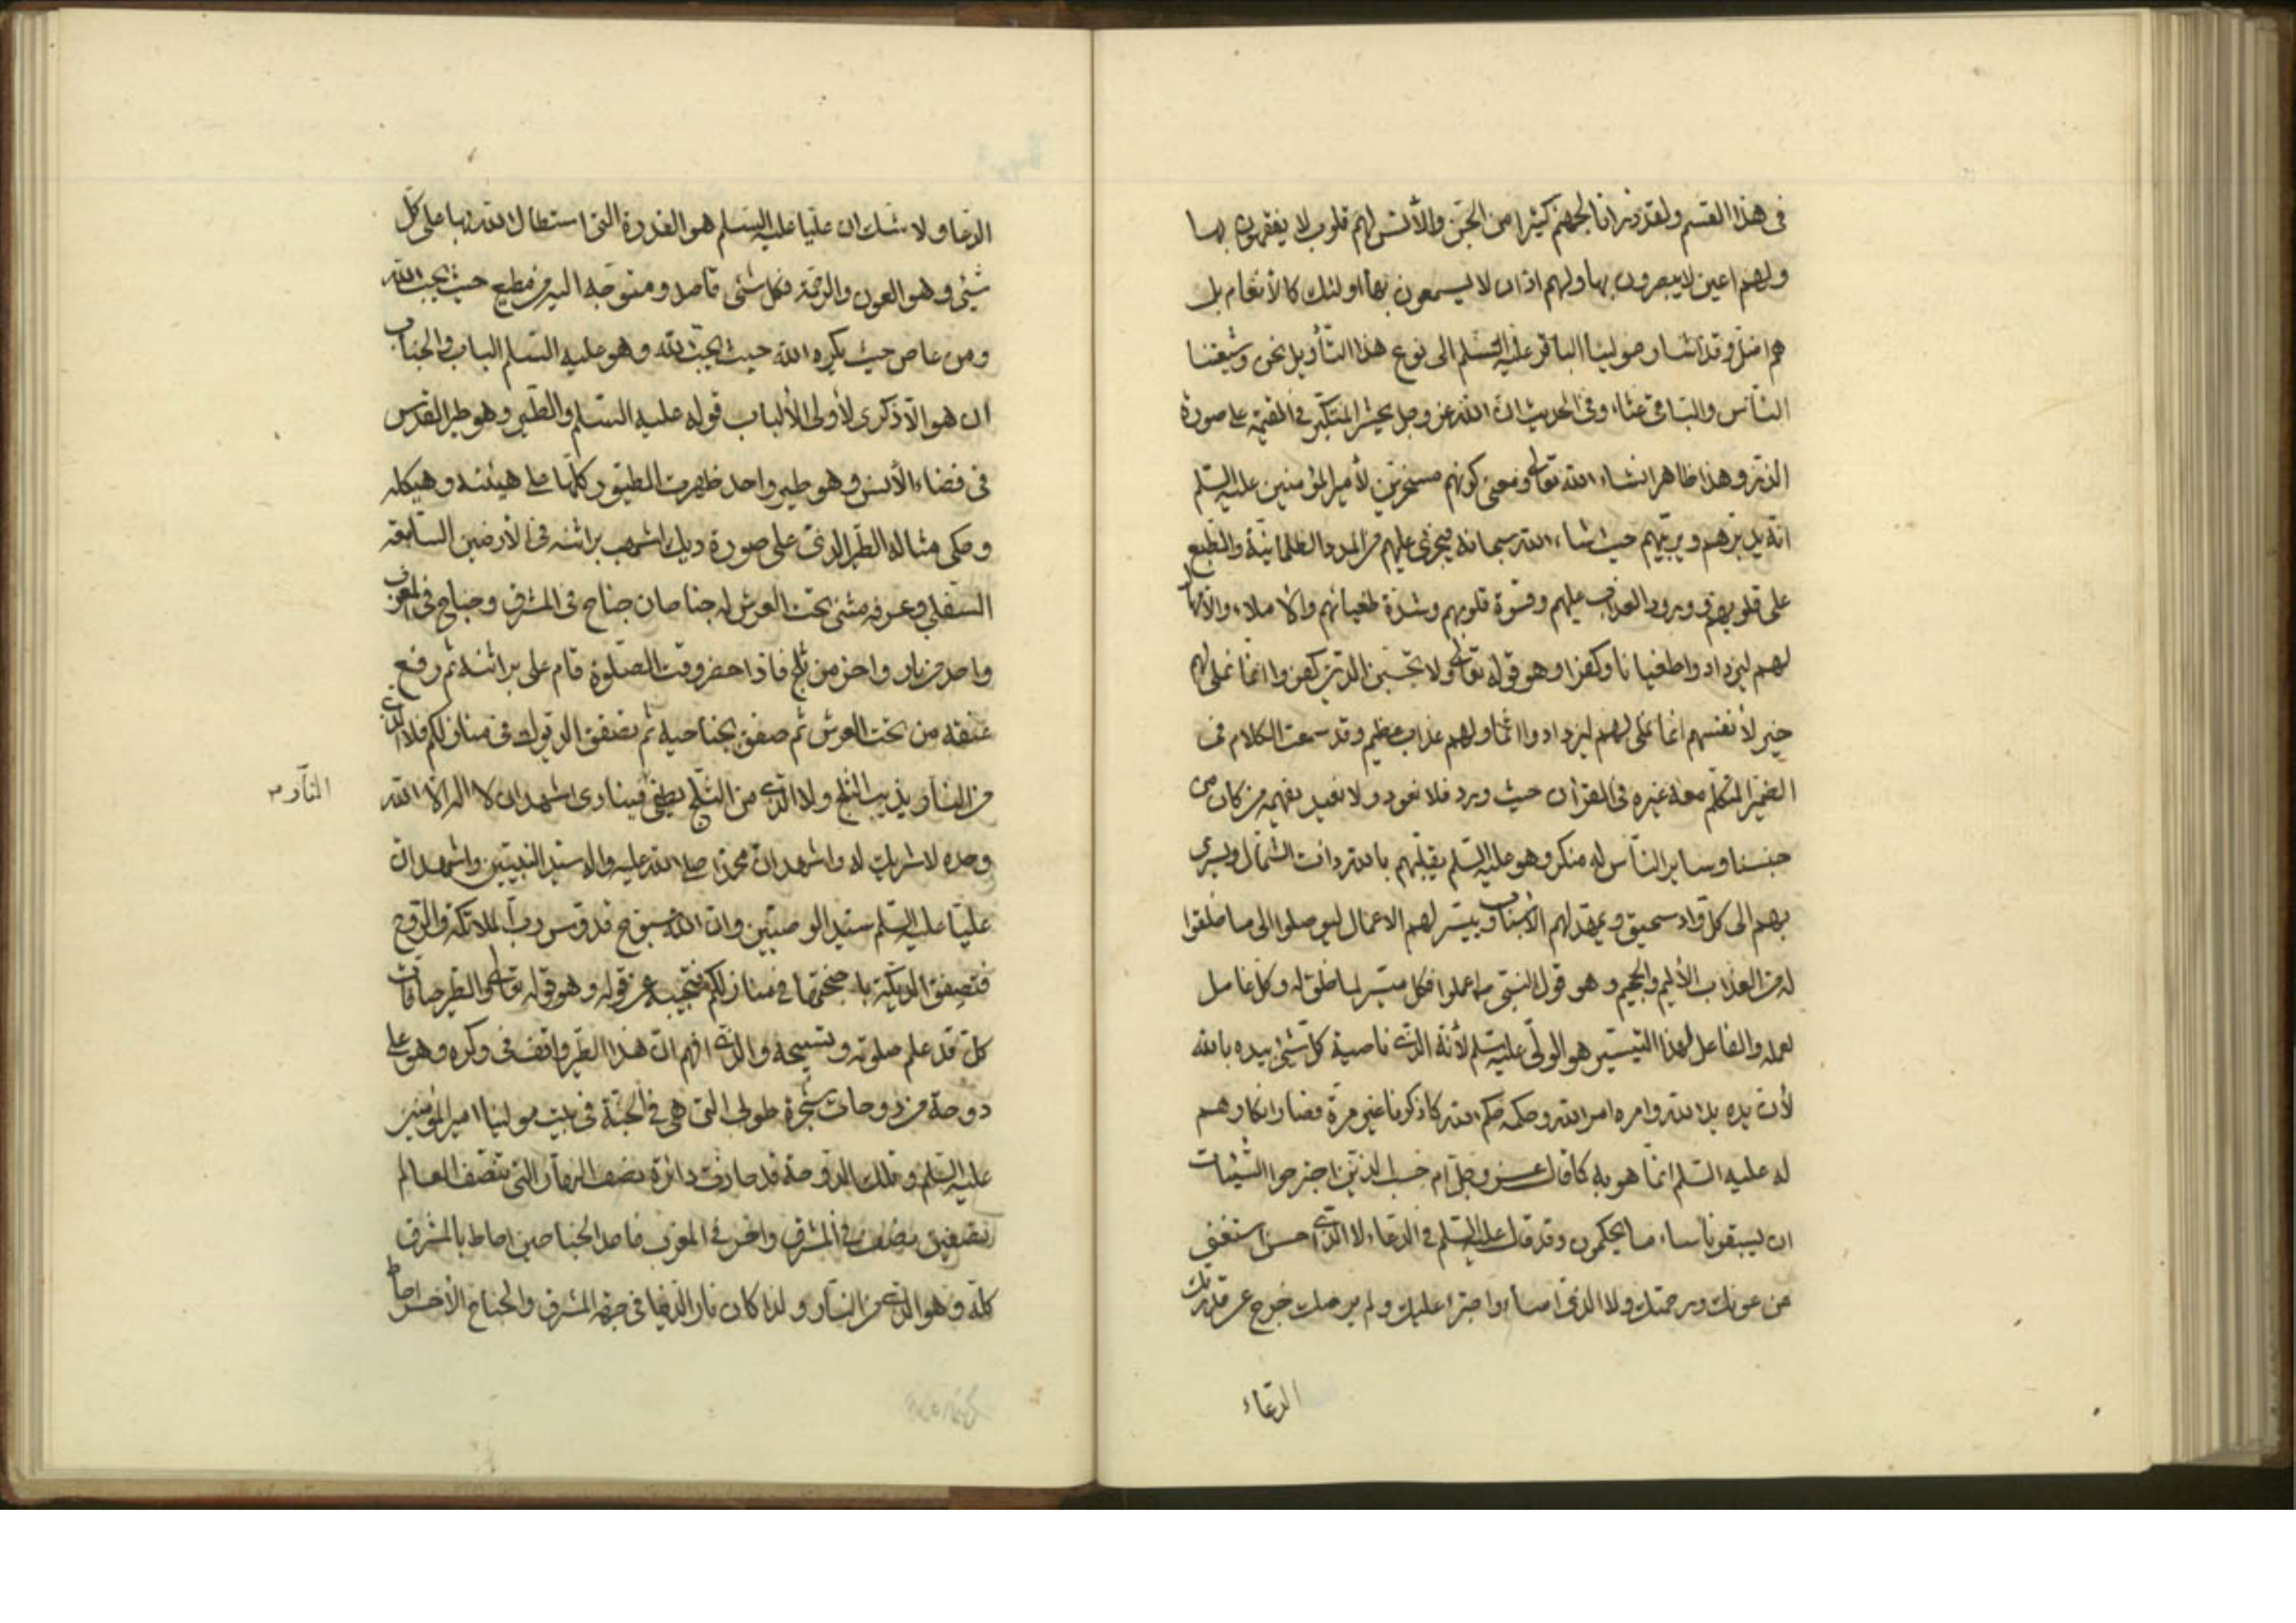 فى هذا القسم ولقد ذرانا لجهنم كثيرا من الجن والأنس لهم قلوب لا يفقهون بها
ولهم اعين لا يبصرون بها ولهم اذان لا يسمعون بها اولئك كالأنعام بل
هم اضل وقد اشار مولينا الباقر عليه السلم الى نوع هذا التأويل نحن وشيعتنا
الناس والباقى غثاء وفى الحديث ان الله عز وجل يحشر المتكبر فى القيمة على صورة
الذر وهذا ظاهر انشاء الله تعالى ومعنى كونهم مسخرين لأمير المؤمنين عليه السلم
انه يدبرهم ويربيهم حيث شاء الله سبحانه فيجرى عليهم من المدد الظلمانية والطبع
على قلوبهم وورود العذاب عليهم وقسوة قلوبهم وشدة طغيانهم والاملاء والأمهال
لهم ليزدادوا طغيانا وكفرا وهو قوله تعالى ولا تحسبن الذين كفروا انما نملى لهم
خير لأنفسهم انما نملى لهم ليزدادوا اثما ولهم عذاب عظيم وقد سمعت الكلام فى
الضمير المتكلم معه غيره فى القرآن حيث ورد فلا نعود ولا نعيد يفهمه من كان من
جنسنا وساير الناس له منكر وهو عليه السلم يقلبهم بالله ذات الشمال ويسرى
بهم الى كل واد سحيق ويمهد لهم الأسباب وييسر لهم الاعمال ليوصلوا الى ما خلقوا
له من العذاب الأليم والجحيم وهو قول النبى ص اعملوا فكل ميسر لما خلق له وكل عامل
لعمله والفاعل لهذا التيسير هو الولى عليه السلم لأنه الذى ناصية كل شئ بيده بالله
لأن يده يد الله وامره امر الله وحكمه حكم الله كما ذكرنا غير مرة فصار انكارهم
له عليه السلم انما هو به كما قال عز وجل ام حسب الذين اجترحوا السيئات
ان يسبقونا ساء ما يحكمون وقد قال عليه السلم فى الدعاء لا الذى احسن استغنى
عن عونك ورحمتك ولا الذى اساء واجترا عليك ولم يرضك خرج عن قدرتك
الدعاء
الدعا ولا شك ان عليا عليه السلم هو القدرة التى استطال الله بها على كل
شئ وهو العون والرحمة فكل شئ قاصد ومتوجه اليه من مطيع حيث يحب الله
ومن عاص حيث يكره الله حيث يحب الله وهو عليه السلم الباب والجناب
ان هو الا ذكرى لأولى الألباب قوله عليه السلم والطير وهو طير القدس
فى فضاء الأنس وهو طير واحد ظهرت الطيور كلها على هيئته وهيكله
وحكى مثاله الطير الذى على صورة ديك اشهب براثنه فى الأرضين السابعة
السفلى وعرفه مثنى تحت العرش له جناحان جناح فى المشرق وجناح فى المغرب
واحد من نار واخر من ثلج فاذا حضر وقت الصلوة قام على براثنه ثم رفع
عنقه من تحت العرش ثم صفق بجناحيه ثم تصفق الديوك فى منازلكم فلا الذى
من النار يذيب الثلج ولا الذى من الثلج يطفئ فينادى اشهد ان لا اله الا الله
النار
وحده لا شريك له واشهد ان محمدا صلى الله عليه واله سيد النبيين واشهد ان
عليا عليه السلم سيد الوصيين وان الله سبوح قدوس رب الملائكة والروح
فتصفق الديكة باجنحتها فى منازلكم فتجيبه عن قوله وهو قوله تعالى والطير صافات
كل قد علم صلوته وتسبيحه والذى افهم ان هذا الطير واقف فى وكره وهو على
دوحة من دوحات شجرة طوبى التى هى فى الجنة فى بيت مولينا امير المؤمنين
عليه السلم وتلك الدوحة قد حاذت دائرة نصف النهار التى تنصف العالم
نصفين نصف فى المشرق واخر فى المغرب فاحد الجناحين احاط بالمشرق
كله وهو الذى من النار ولذا كان نار الدنيا فى جهة المشرق والجناح الأخر احاط